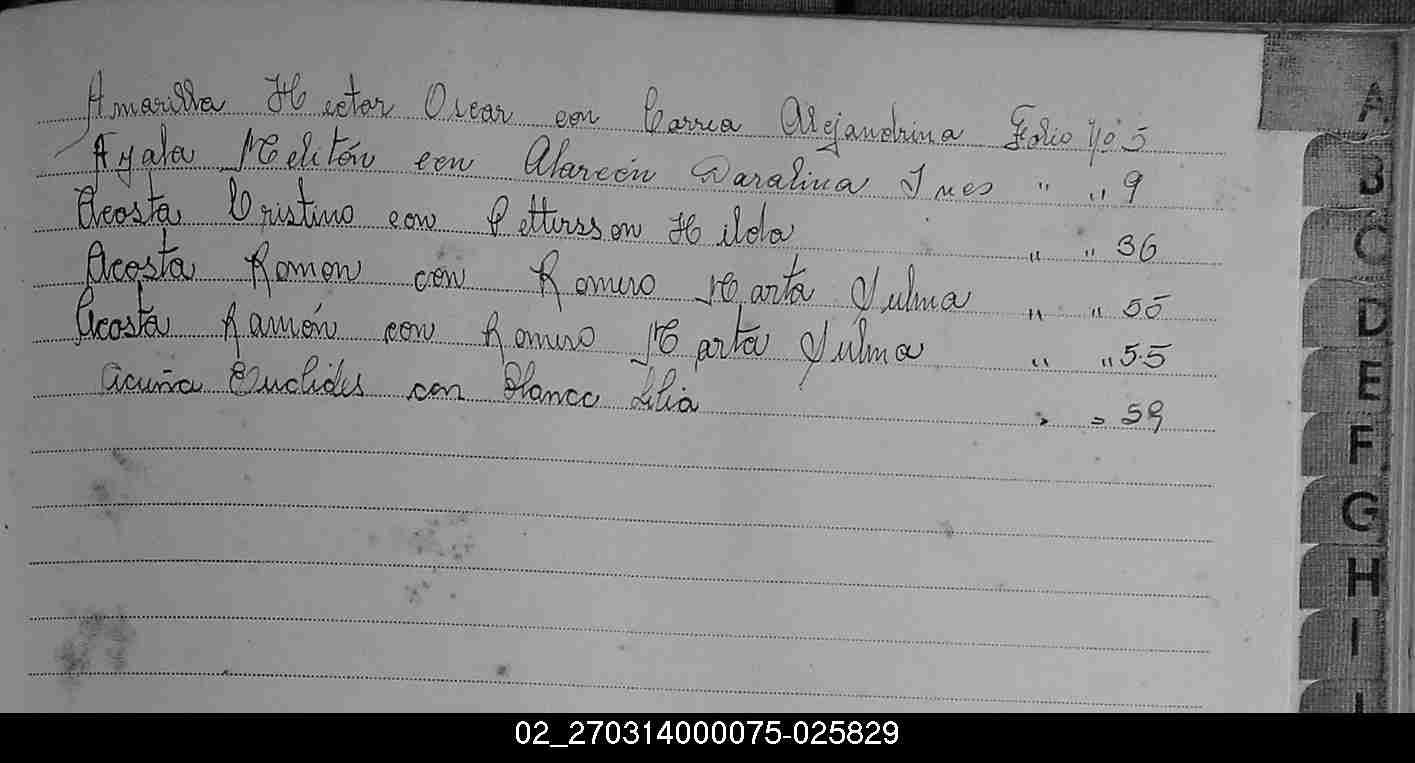 Amarilla Hector Oscar con Correa Alejandrina Folio Nº 5
Ayala Melitón con Alarcón Daralina Ines " " 9
Acosta Cristino con Pettersson Hilda " " 36
Acosta Romon con Romero Marta Yulma " " 55
Acosta Ramón con Romero Marta Yulma " " 55
Acuña Euclides con Blanco Lilia " = 59
A
B
C
D
E
F
G
H
I
02_270314000075-025829